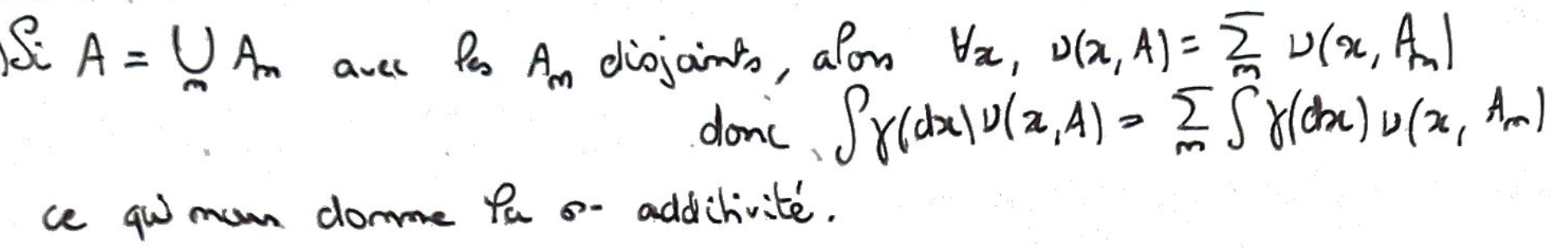 Si A = ⋃_n A_n avec les A_n disjoints, alors ∀x, ν(x, A) = ∑_n ν(x, A_n)
donc ∫γ(dx)ν(x, A) = ∑_n ∫γ(dx) ν(x, A_n)
ce qui nous donne la σ- additivité.